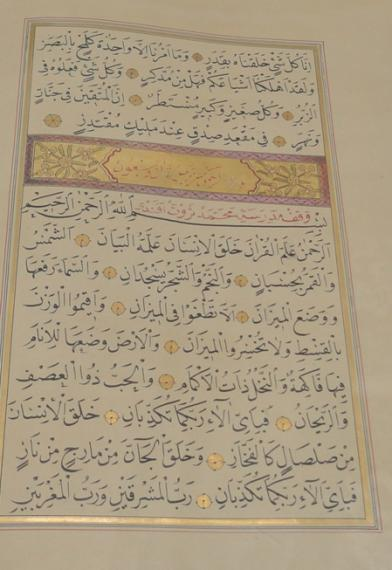 اِنَّا كُلَّ شَيْءٍ خَلَقْنَاهُ بِقَدَرٍ وَمَا اَمْرُنَا اِلَّا وَاحِدَةٌ كَلَمْحٍ بِالْبَصَرِ
وَلَقَدْ اَهْلَكْنَا اَشْيَاعَكُمْ فَهَلْ مِنْ مُدَّكِرٍ وَكُلُّ شَيْءٍ فَعَلُوهُ فِي
الزُّبُرِ وَكُلُّ صَغِيرٍ وَكَبِيرٍ مُسْتَطَرٌ اِنَّ الْمُتَّقِينَ فِي جَنَّاتٍ
وَنَهَرٍ فِي مَقْعَدِ صِدْقٍ عِنْدَ مَلِيكٍ مُقْتَدِرٍ
بِسْمِ اللّٰهِ الرَّحْمٰنِ الرَّحِيمِ
اَلرَّحْمٰنُ عَلَّمَ الْقُرْاٰنَ خَلَقَ الْاِنْسَانَ عَلَّمَهُ الْبَيَانَ اَلشَّمْسُ
وَالْقَمَرُ بِحُسْبَانٍ وَالنَّجْمُ وَالشَّجَرُ يَسْجُدَانِ وَالسَّمَاءَ رَفَعَهَا
وَوَضَعَ الْمِيزَانَ اَلَّا تَطْغَوْا فِي الْمِيزَانِ وَاَقِيمُوا الْوَزْنَ
بِالْقِسْطِ وَلَا تُخْسِرُوا الْمِيزَانَ وَالْاَرْضَ وَضَعَهَا لِلْاَنَامِ
فِيهَا فَاكِهَةٌ وَالنَّخْلُ ذَاتُ الْاَكْمَامِ وَالْحَبُّ ذُو الْعَصْفِ
وَالرَّيْحَانُ فَبِاَيِّ اٰلَاءِ رَبِّكُمَا تُكَذِّبَانِ خَلَقَ الْاِنْسَانَ
مِنْ صَلْصَالٍ كَالْفَخَّارِ وَخَلَقَ الْجَانَّ مِنْ مَارِجٍ مِنْ نَارٍ
فَبِاَيِّ اٰلَاءِ رَبِّكُمَا تُكَذِّبَانِ رَبُّ الْمَشْرِقَيْنِ وَرَبُّ الْمَغْرِبَيْنِ